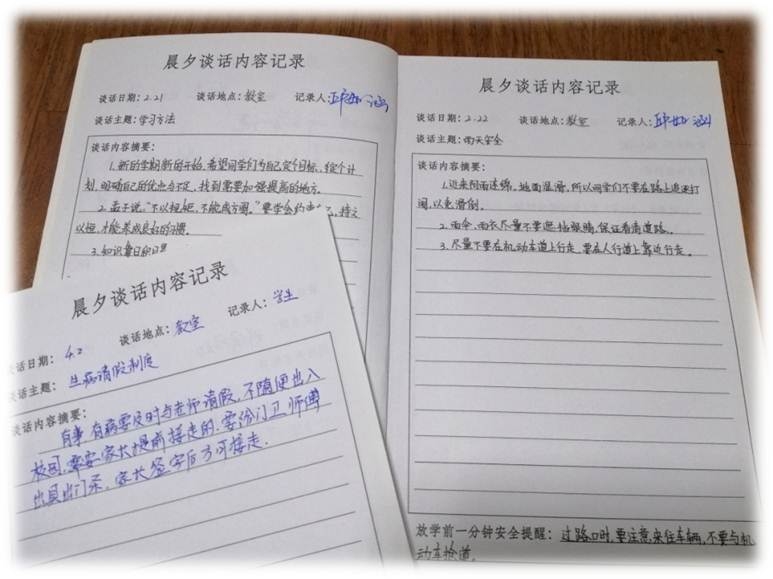 晨夕谈话内容记录
谈话日期：2.21 谈话地点：教室 记录人：
谈话主题：学习方法
谈话内容摘要：
1.新的学期新的开始，希望同学们为自己定个目标、给定个计
划，明确自己的优点与不足，找到需要加强提高的地方。
2.孟子说：“不以规矩，不能成方圆。”要学会约束 ，持之
以恒，才能养成良好的习惯。
3.知识靠日积月累
晨夕谈话内容记录
谈话日期：2.22 谈话地点：教室 记录人：
谈话主题：雨天安全
谈话内容摘要：
1.近来阴雨连绵，地面湿滑，所以同学们不要在路上追逐打
闹，以免滑倒。
2.雨伞、雨衣尽量不要遮挡视线，保证看清道路。
3.尽量不要在机动车道上行走，要在人行道上靠边行走。
放学前一分钟安全提醒：过路口时，要注意来往车辆，不要与机
动车抢道。
晨夕谈话内容记录
话日期：4.2 谈话地点：教室 记录人：学生
话主题：生病请假制度
谈话内容摘要：
有事有病要及时与老师请假，不随便出入
校园，需要家长提前接走的，要给门卫师傅
出具出门条，家长签字后方可接走.